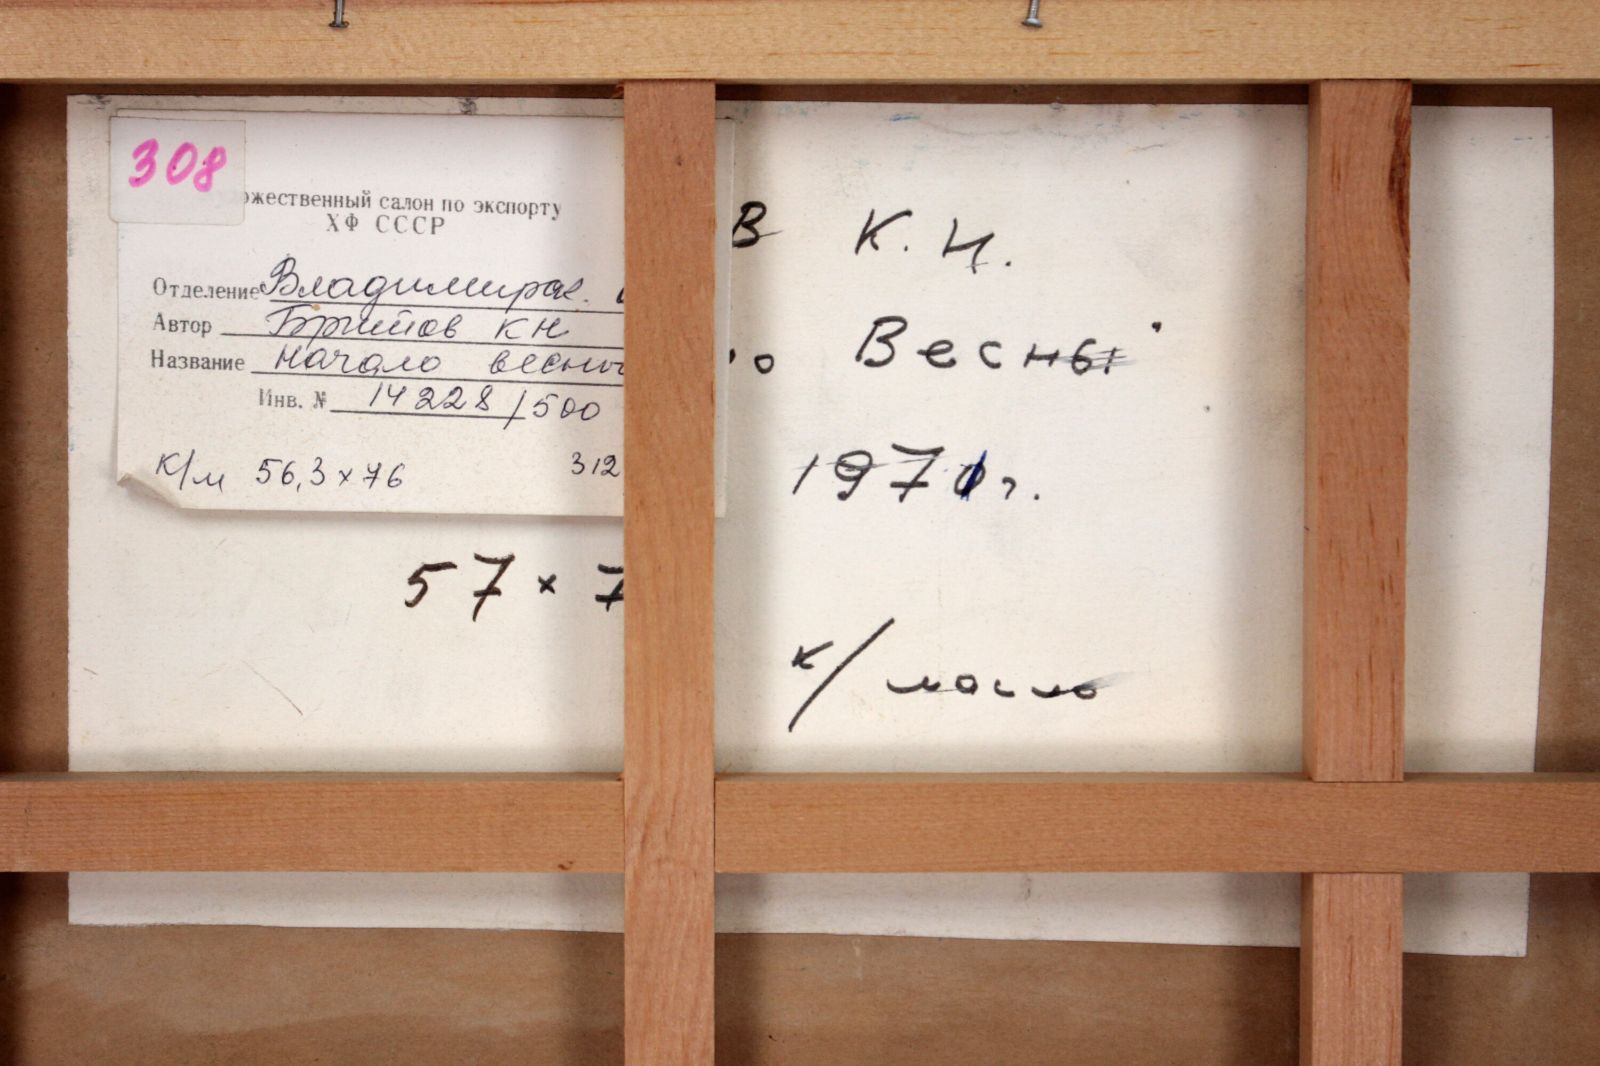 308
ожественный салон по экспорту
ХФ СССР
Отделение Владимирск.
Автор Бритов КН
Название Начало весны
Инв. № 14228/500
К/м 56,3 х 76 312
В К. Н.
о Весны
1970 г.
57 х 7
к/масло